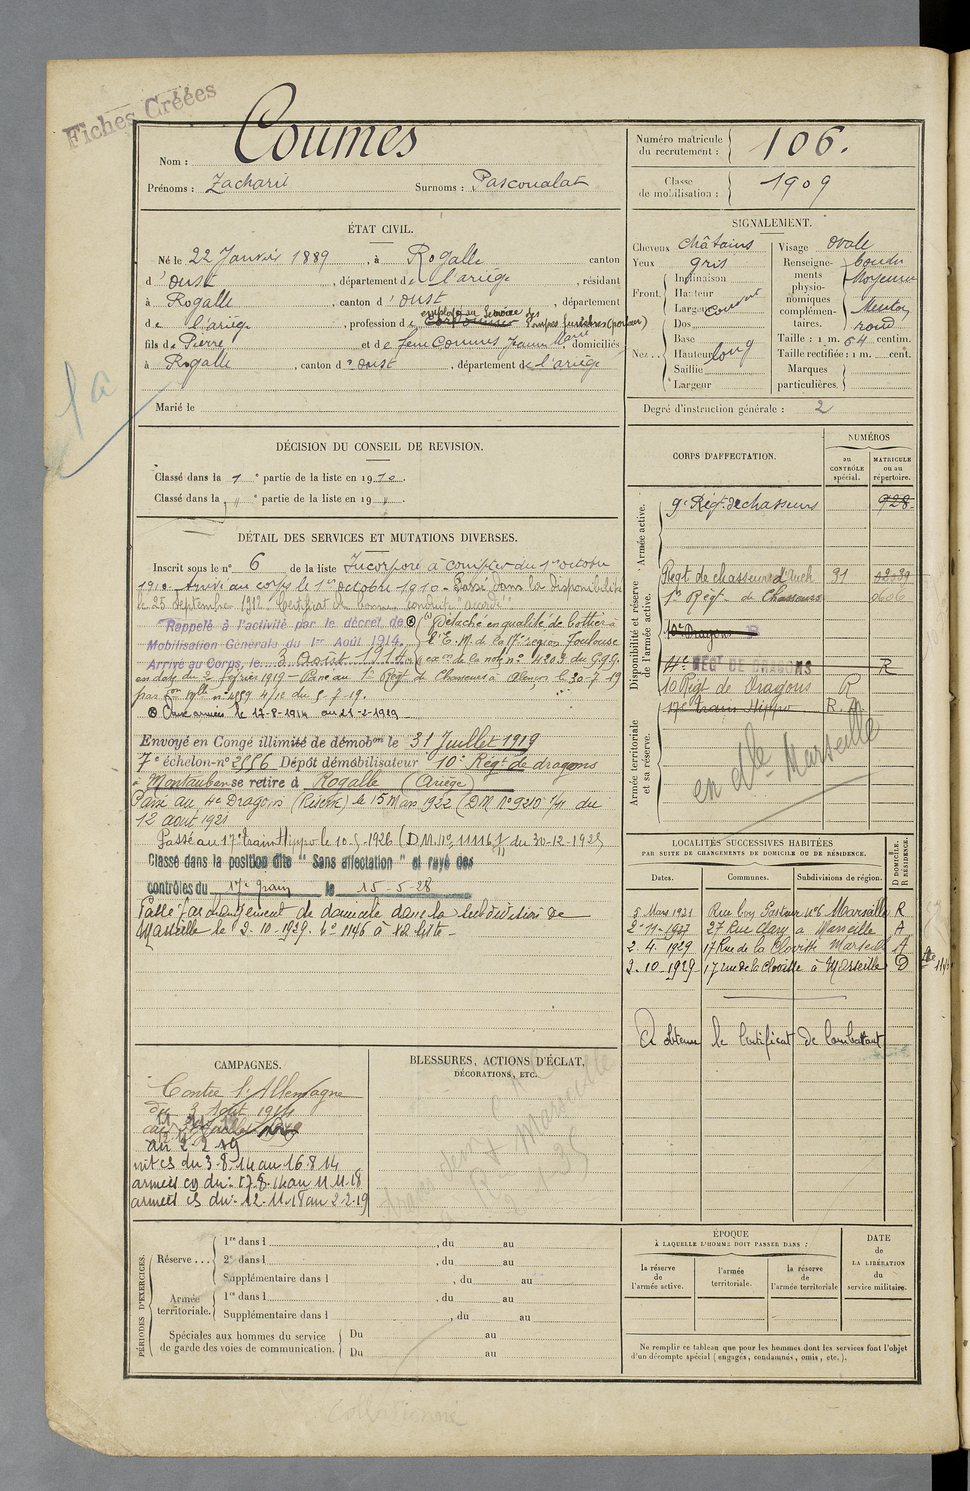 Fiches Créées
Nom : Coumes
Prénoms : Zacharie Surnoms : Pascoualat
Numéro matricule du recrutement : 106.
Classe de mobilisation : 1909
ÉTAT CIVIL.
Né le 22 Janvier 1889, à Rogalle canton
d'oust, département de l'ariège, résidant
à Rogalle, canton d'oust, département
de l'ariège, profession de employé au Service des Pompes funèbres (porteur)
fils de Pierre et de feue Coumes Jeanne Marie domiciliés
à Rogalle, canton d'oust, département de l'ariège
Marié le
1 a
SIGNALEMENT.
Cheveux châtains
Yeux gris
Front. Inclinaison
Hauteur
Largeur
Nez... Dos
Base
Hauteur long
Saillie
Largeur
Visage ovale
Renseignements physionomiques complémentaires.
Menton rond
Taille : 1 m. 64 centim.
Taille rectifiée : 1 m. cent.
Marques particulières.
Degré d'instruction générale : 2
DÉCISION DU CONSEIL DE REVISION.
Classé dans la 1e partie de la liste en 1910.
Classé dans la " e partie de la liste en 19 ".
DÉTAIL DES SERVICES ET MUTATIONS DIVERSES.
Inscrit sous le n° 6 de la liste Incorporé à compter du 1er octobre
1910. Arrivé au corps le 1er octobre 1910. Passé dans la Disponibilité
le 25 septembre 1912. Certificat de bonne conduite accordé
Rappelé à l'activité par le décret de
Mobilisation Générale du 1er Août 1914.
Arrivé au Corps, le 3 août 1914
Détaché en qualité de bottier à
l'E. M. de la 17e région Toulouse
en date du 2 février 1919 - Passé au 1er Régt de Chasseurs à Alençon le 30-7-19
Aux armées le 17-8-1914 au 21-2-1919
Envoyé en Congé illimité de démobon le 31 Juillet 1919
7e échelon n° 3556 Dépôt démobilisateur 10e Régt de dragons
à Montauban se retire à Rogalle (Ariège)
Passé au 4e Dragons (Réserve) le 15 Mars 1922 (DM N° 9210 1/11 du
12 aout 1921
Passé au 17e train Hippo le 10-5-1926 (D.M. N° 11116 du 30-12-1925
Classé dans la position dite "Sans affectation" et rayé des
contrôles du 17e train le 15-5-28
Passé par changement de domicile dans la subdivision de
Marseille le 2-10-1929. N° 1146 à la liste -
CORPS D'AFFECTATION.
NUMÉROS
au CONTRÔLE spécial.
MATRICULE ou au répertoire.
Armée active.
9e Régt. de chasseurs 928
Disponibilité et réserve de l'armée active.
Régt de chasseurs d'Auch 91
1er Régt de Chasseurs
10e Dragons
4e RÉGT DE DRAGONS R
10 Régt de Dragons R
17e train Hippo
Armée territoriale et sa réserve.
en dle Marseille
LOCALITÉS SUCCESSIVES HABITÉES
PAR SUITE DE CHANGEMENTS DE DOMICILE OU DE RÉSIDENCE.
Dates. Communes. Subdivisions de région. D DOMICILE. R RÉSIDENCE.
5 Mars 1921 Rue Pasteur n° 6 Marseille R
2-11-1927 27 Rue Clary à Marseille A
2.4.1929 17 Rue de la Clovisse Marseille A
2.10.1929 17 rue de la Clovisse à Marseille D
A obtenu le Certificat de Combattant
CAMPAGNES.
Contre l'Allemagne
du 3 Août 1914
au 2.2.19
du 3.8.14 au 16.8.14
armées du 17.8.14 au 11.11.18
armées du 12.11.18 au 2.2.19
BLESSURES, ACTIONS D'ÉCLAT,
DÉCORATIONS, ETC.
PÉRIODES D'EXERCICES.
Réserve... 1re dans l , du au
2e dans l , du au
Supplémentaire dans l , du au
Armée territoriale. 1re dans l , du au
Supplémentaire dans l , du au
Spéciales aux hommes du service de garde des voies de communication. Du au
Du au
ÉPOQUE
À LAQUELLE L'HOMME DOIT PASSER DANS :
la réserve de l'armée active.
l'armée territoriale.
la réserve de l'armée territoriale
DATE de LA LIBÉRATION du service militaire.
Ne remplir ce tableau que pour les hommes dont les services font l'objet
d'un décompte spécial (engagés, condamnés, omis, etc.).
Collationné